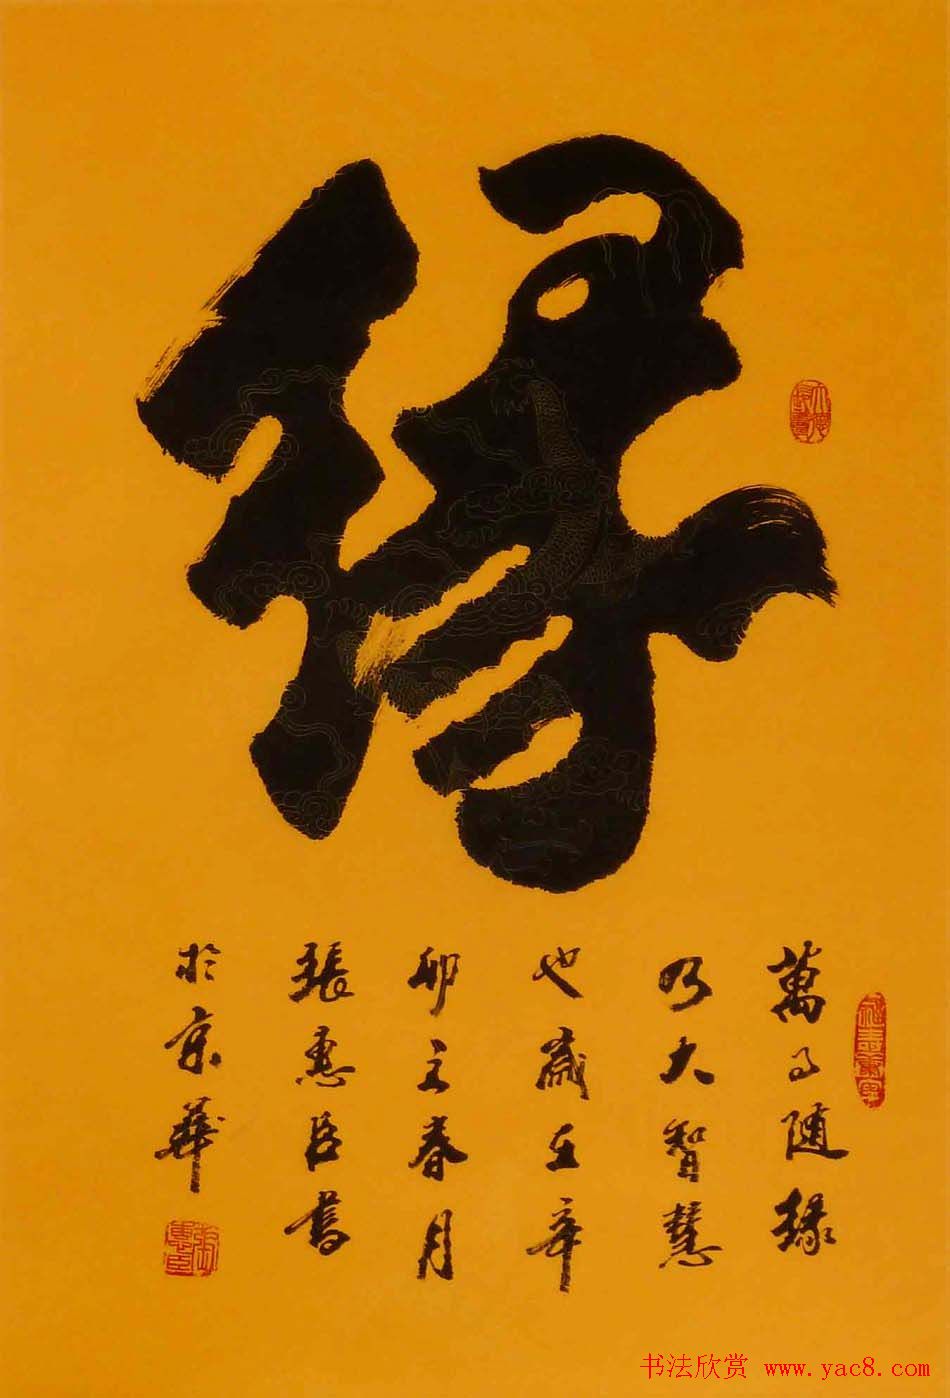 緣
萬事随緣
乃大智慧
也歲在辛
卯之春月
張惠臣書
於京華
张惠臣
书法欣赏 www.yac8.com